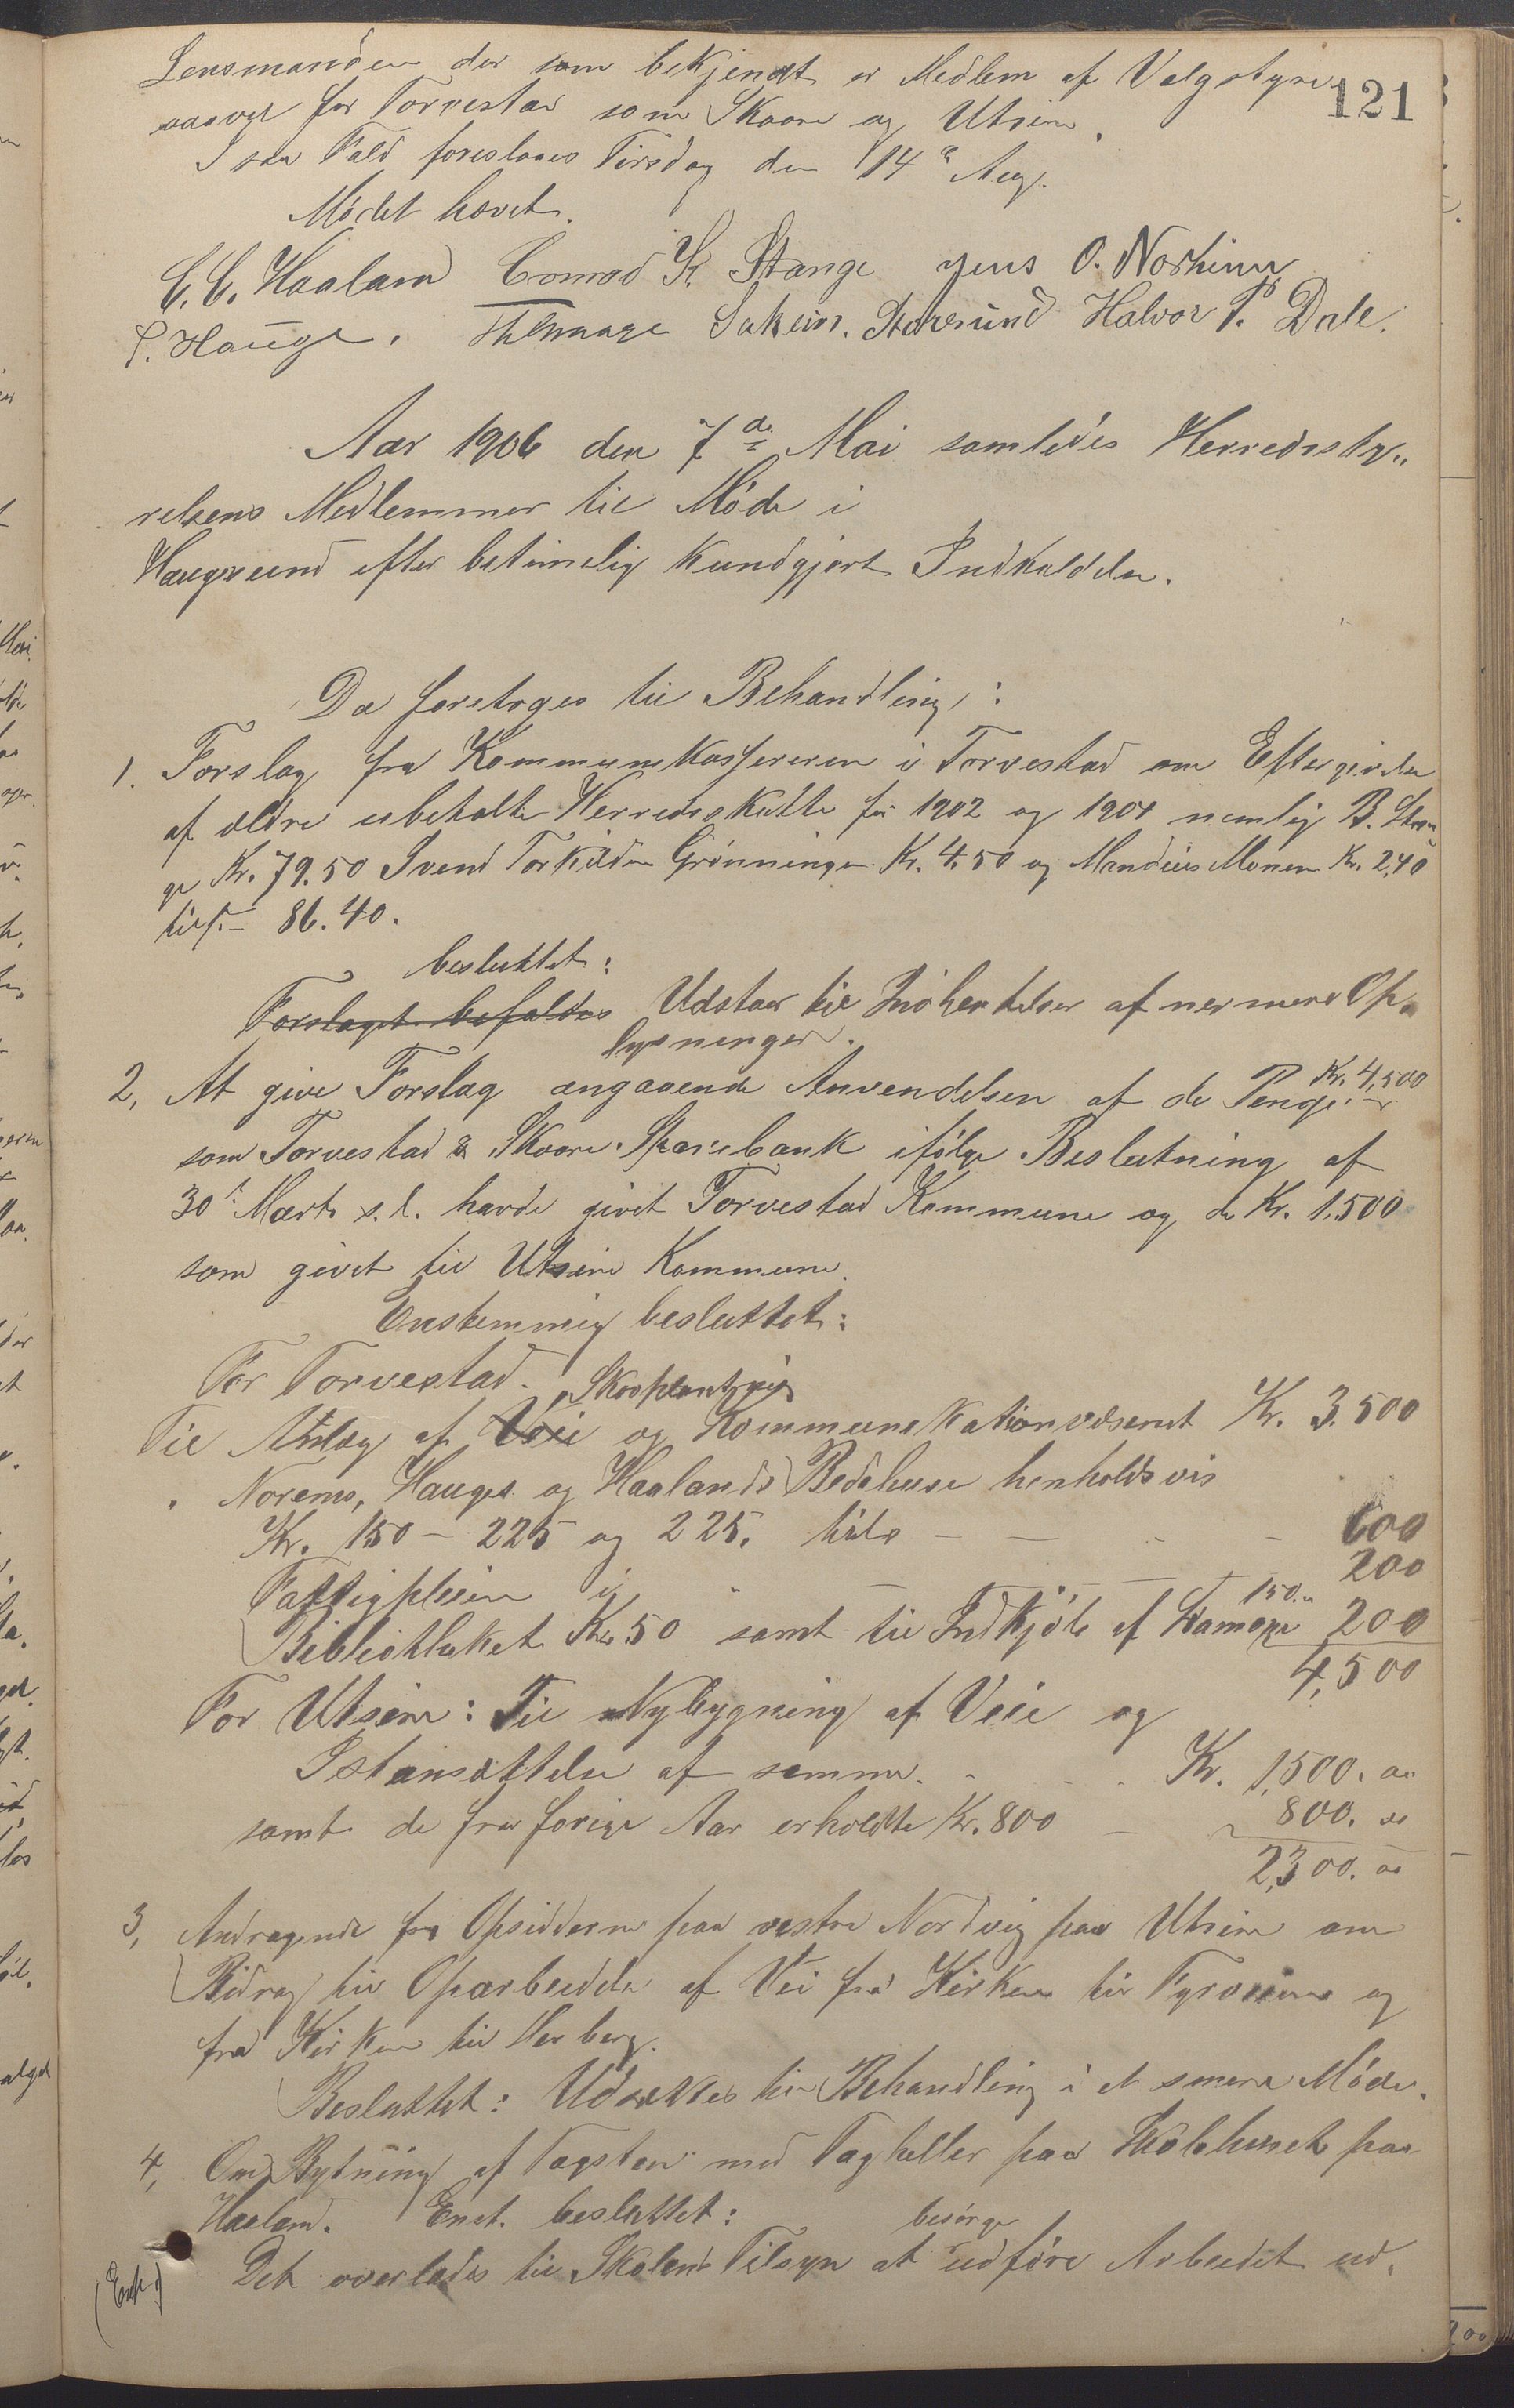 121
Lensmanden der som bekjendt er Medlem af Valgstyre
saavel for Torvestad som Skaare og Utsire.
I saa Fald foreslaaes Tirsdag den 14de Aug.
Mødet hævet.
C. C. Haaland Conrad K. Stange Jens O. Norheim
S. Hauge. Sakein. Storesund Halvor P. Dale.
Aar 1906 den 7de Mai samledes Herredssty„
relsens Medlemmer til Møde i
Haugesund efter betimelig kundgjort Indkaldelse.
Da foretoges til Behandling:
1. Forslag fra Kommunekassereren i Torvestad om Eftergivelse
af ældre ubetalte Herredsskatte for 1902 og 1904 nemlig B. Stan
ge Kr. 79.50 Svend Torkildsen Grønningen Kr. 4.50 og Mandius Monsen Kr. 2,40
tils. – 86.40.
besluttet:
Forslaget befaldes Udstaar til Indhentelse af nermere Op„
lysninger.
2, At give Forslag angaaende Anvendelsen af de Penge Kr. 4,500
som Torvestad & Skaare Sparebank ifølge Beslutning af
30te Marts s.l. havde givet Torvestad Kommune og de Kr. 1.500
som givet til Utsire Kommune.
Enstemmig besluttet:
For Torvestad.
Skovplantning
Til Anlæg af Veie og Kommunikationsvæsenet Kr. 3.500
" Norems, Hauges og Haalands Bedehuse henholdsvis
Kr. 150 – 225 og 225. tils – – - - 600
Fattigpleien – – – 200
Bibliotheket Kr. 50 samt til Indkjøb af 150." 200
4,500
For Utsire: Til Nybygning af Veie og
Istansættelse af samme. - - - Kr. 1,500. oo
samt de fra forige Aar erholdte Kr. 800 – " 800. oo
2,300. oo
3, Andragende fra Opsidderne paa vestre Nordvig paa Utsire om
Bidrag til Oparbeidelse af Vei fra Kirken til og
fra Kirken til Herberg.
Besluttet: Udsættes til Behandling i et senere Møde.
4, Om Bytning af Tagsten med Tagheller paa Skolehuset paa
Haaland. Enst. besluttet:
besørge
Det overlades til Skolens Tilsyn at udføre Arbeidet ud„